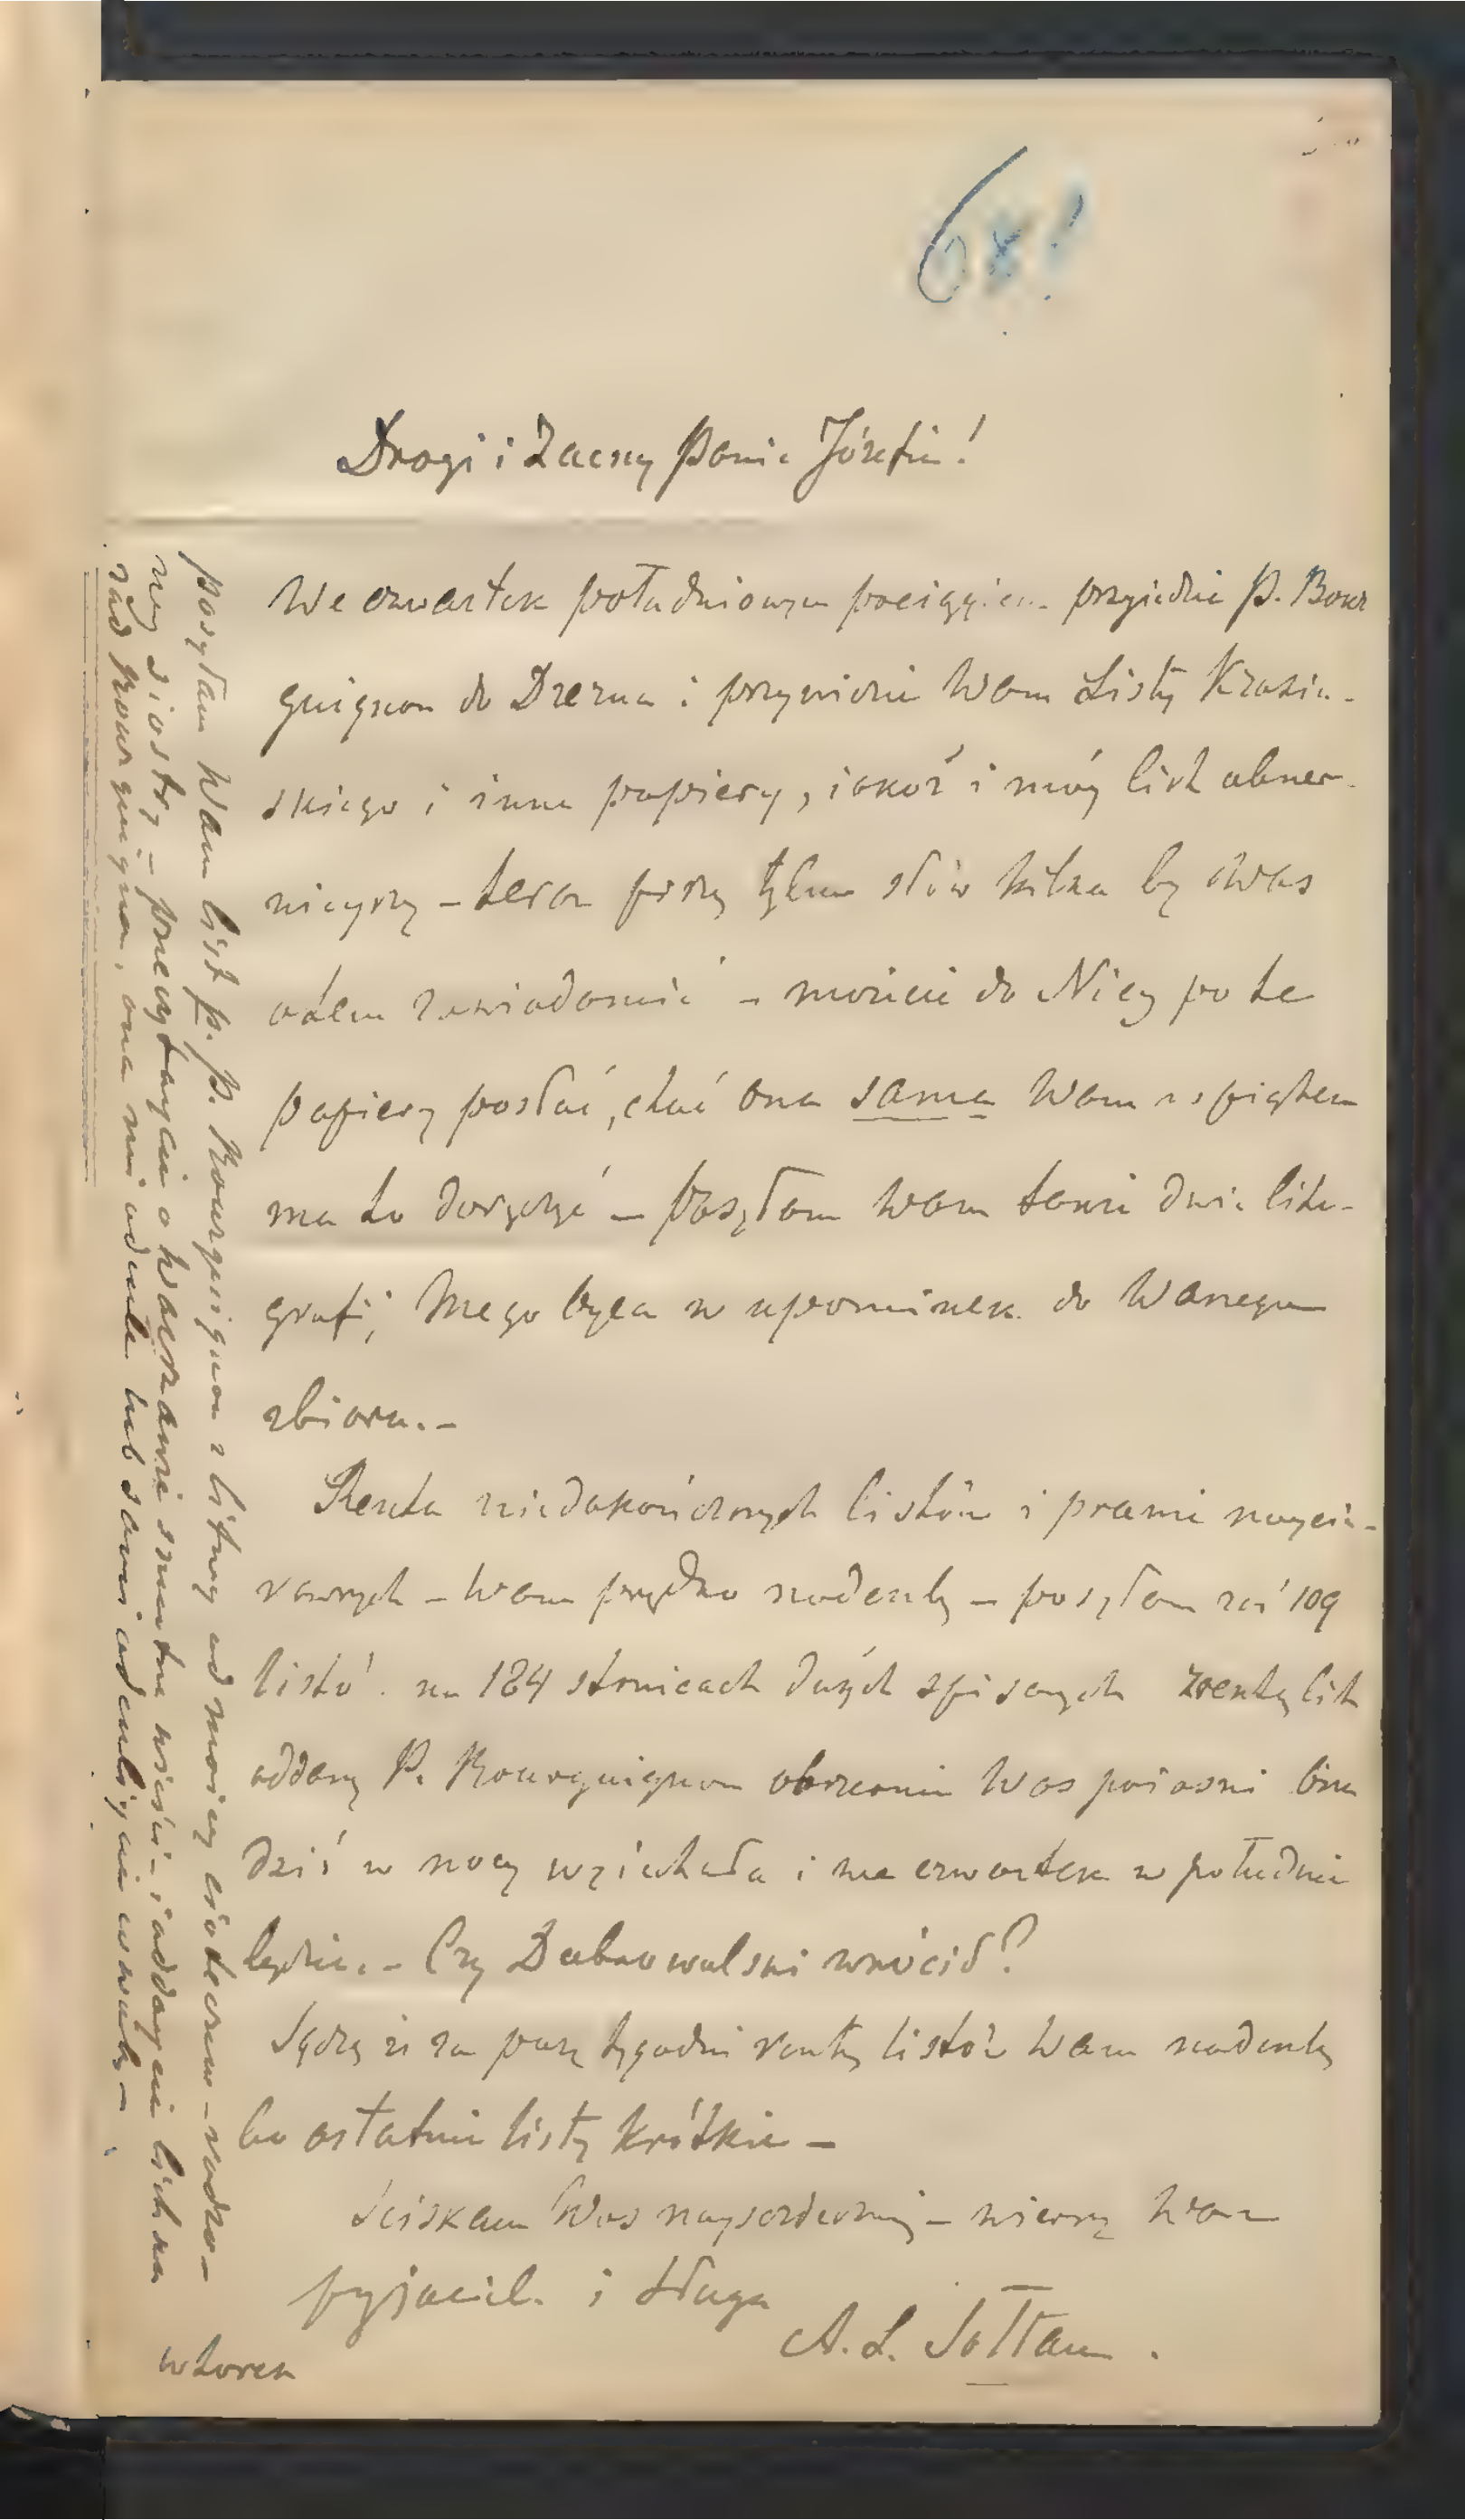 Drogi i Zacny Panie Józefie!
We czwartek południowym pociągiem przyiedzie P. Bour
guignon do Drezna i przywiezie Wam Listy Krasiń-
skiego i inne papiery, iakoż i móy list obszer-
nieyszy – teraz piszę tylko słów kilka by Was
o tem zawiadomić – możecie do Niey po te
papiery posłać, choć ona sama Wam z
ma to doręczyć – Posyłam Wam także dwie lito-
grafij Mego Oyca w upominek do Waszego
zbioru. –
Reszta niedokończonych listów i prawie naycie-
kawszych – Wam prędko nadeszlę – posyłam zaś 109
listó. na 184 stronicach dużych spisanych zresztą list
oddany P. Bourguignon obszernie Was poiaśni Ona
dziś w nocy wyiechała i we czwartek w południe
będzie. – Czy Dubrowolski wrócił?
Sądzę iż za parę tygodni resztę listów Wam nadeszlę
bo ostatnie listy krótkie –
Ściskam Was nayserdeczniey – wierny Wasz
przyjaciel i Sługa
A. L. Sołtan.
wtorek
posyłam Wam list p. P. Bourguignon z Litwy od moiey ciotecznо-rodzo-
ney siostry – przeczytaycie o Warszawie smutne wieści – i oddaycie list na
ręce Bourguignon, ona mi odeszle lub sami odeszliycie